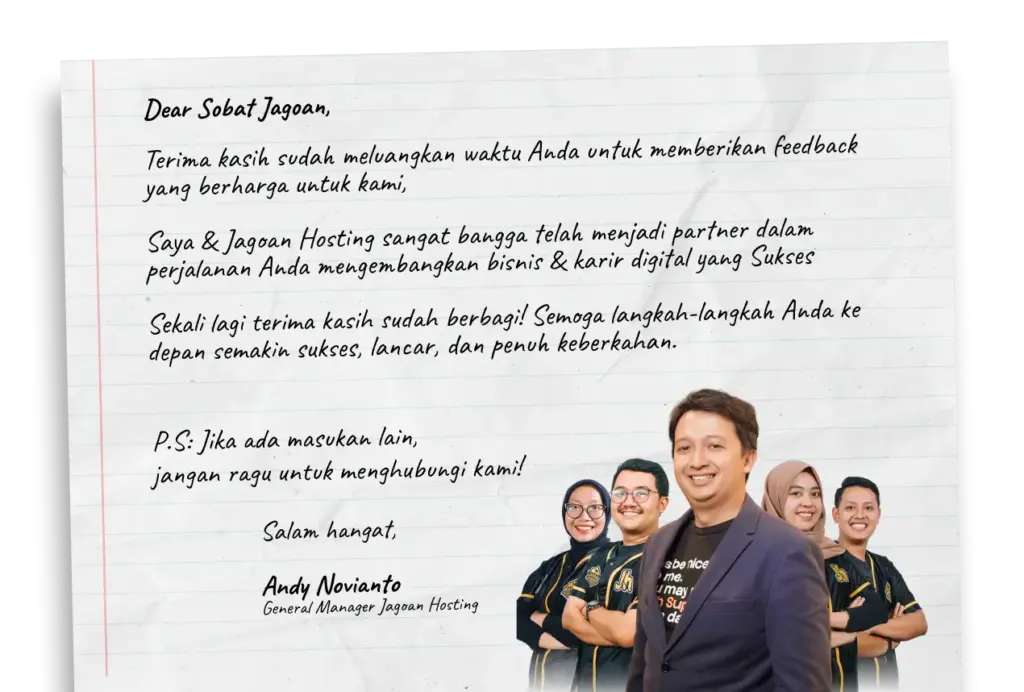 Dear Sobat Jagoan,
Terima kasih sudah meluangkan waktu Anda untuk memberikan feedback
yang berharga untuk kami,
Saya & Jagoan Hosting sangat bangga telah menjadi partner dalam
perjalanan Anda mengembangkan bisnis & karir digital yang Sukses
Sekali lagi terima kasih sudah berbagi! Semoga langkah-langkah Anda ke
depan semakin sukses, lancar, dan penuh keberkahan.
P.S: Jika ada masukan lain,
jangan ragu untuk menghubungi kami!
Salam hangat,
Andy Novianto
General Manager Jagoan Hosting
be nice
me.
may